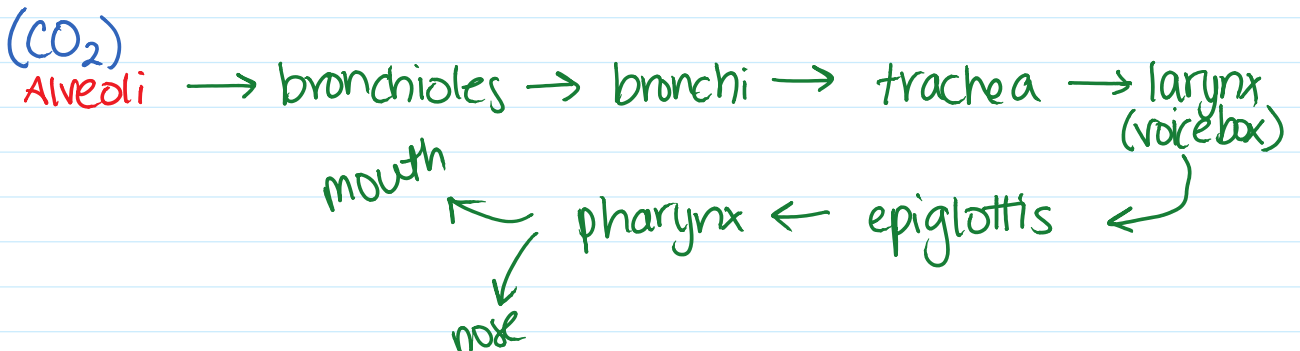 (CO₂)
Alveoli → bronchioles → bronchi → trachea → larynx
(voicebox)
mouth
pharynx ← epiglottis
nose